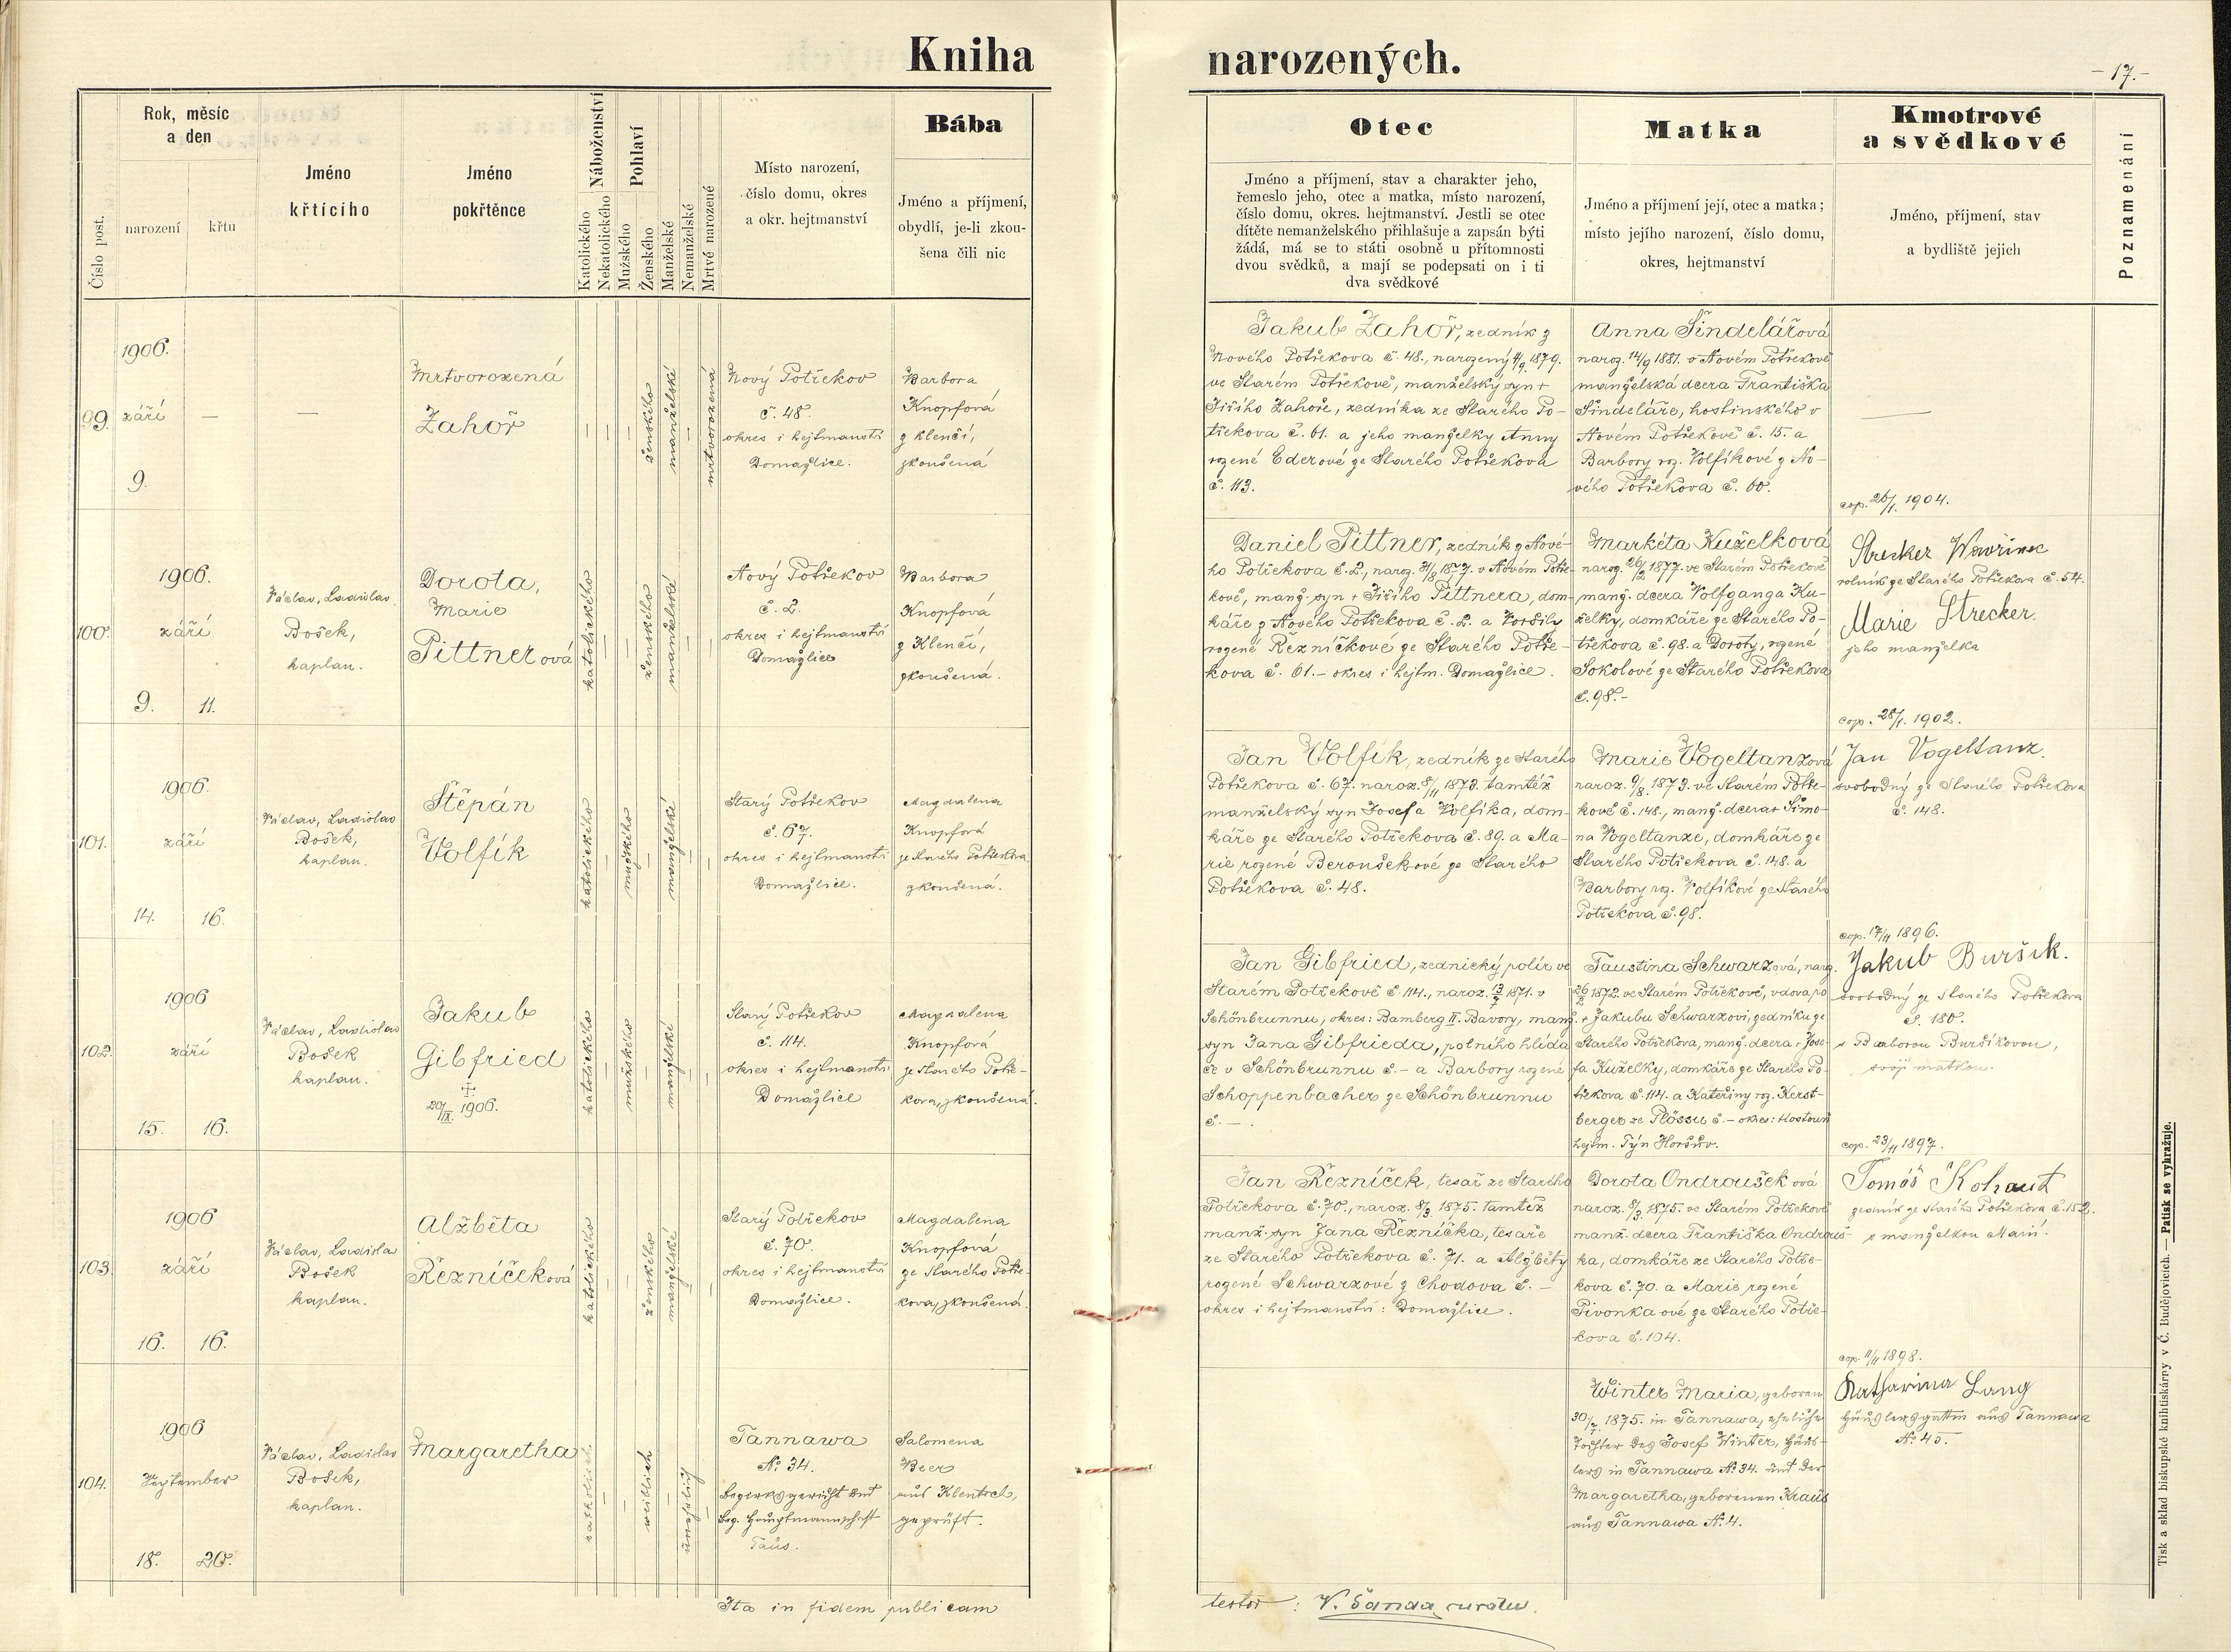 Kniha narozených.
- 17. -
Rok, měsíc
a den
Číslo post.
narození
křtu
Jméno
křtícího
Jméno
pokřtěnce
Náboženství
Katolického
Nekatolického
Pohlaví
Mužského
Ženského
Manželské
Nemanželské
Mrtvé narozené
Místo narození,
číslo domu, okres
a okr. hejtmanství
Bába
Jméno a příjmení,
obydlí, je-li zkou-
šena čili nic
Otec
Jméno a příjmení, stav a charakter jeho,
řemeslo jeho, otec a matka, místo narození,
číslo domu, okres. hejtmanství. Jestli se otec
dítěte nemanželského přihlašuje a zapsán býti
žádá, má se to státi osobně u přítomnosti
dvou svědků, a mají se podepsati on i ti
dva svědkové
Matka
Jméno a příjmení její, otec a matka;
místo jejího narození, číslo domu,
okres, hejtmanství
Kmotrové
a svědkové
Jméno, příjmení, stav
a bydliště jejich
Poznamenání
99.
1906.
září
—
9.
—
Mrtvorozená
Zahoř
ženského
manželské
mrtvorozená
Nový Potřekov
č. 48.
okres i hejtmanství
Domažlice.
Barbora
Knopfová
z Klenčí,
zkoušená
Jakub Zahoř, zedník z
Nového Potřekova č. 48., narozený 4/9. 1879.
ve Starém Potřekově, manželský syn +
Jiřího Zahoře, zedníka ze Starého Po-
třekova č. 61. a jeho manželky Anny
rozené Ederové ze Starého Potřekova
č. 113.
Anna Šindelářová
naroz. 14/9 1881. v Novém Potřekově
manželská dcera Františka
Šindeláře, hostinského v
Novém Potřekově č. 15. a
Barbory roz. Volfíkové z No-
vého Potřekova č. 60.
cop. 26/1. 1904.
100.
1906.
září
9.
11.
Václav, Ladislav
Bošek,
kaplan.
Dorota,
Marie
Pittnerová
katolického
ženského
manželské
Nový Potřekov
č. 2.
okres i hejtmanství
Domažlice
Barbora
Knopfová
z Klenčí,
zkoušená.
Daniel Pittner, zedník z Nové-
ho Potřekova č. 2., naroz. 3/8 1877. v Novém Potře-
kově, manž. syn + Jiřího Pittnera, dom-
káře z Nového Potřekova č. 2. a Voršily
rozené Řezníčkové ze Starého Potře-
kova č. 61. - okres i hejtm. Domažlice.
Markéta Kuželková
naroz. 20/2 1877. ve Starém Potřekově
manž. dcera Volfganga Ku-
želky, domkáře ze Starého Po-
třekova č. 98. a Doroty, rozené
Sokolové ze Starého Potřekova
č. 98. -
Strecker Wavřinec
rolník ze Starého Potřekova č. 54.
Marie Strecker.
jeho manželka
cop. 28/1. 1902.
101.
1906.
září
14.
16.
Václav, Ladislav
Bošek,
kaplan.
Štěpán
Volfík
katolického
mužského
manželské
Starý Potřekov
č. 67.
okres i hejtmanství
Domažlice.
Magdalena
Knopfová
ze Starého Potřekova
zkoušená.
Jan Volfík, zedník ze Starého
Potřekova č. 67. naroz. 8/11 1873. tamtéž
manželský syn Josefa Volfíka, dom-
káře ze Starého Potřekova č. 89. a Ma-
rie rozené Beroušekové ze Starého
Potřekova č. 48.
Marie Vogeltanzová
naroz. 9/8. 1873. ve Starém Potře-
kově č. 148., manž. dcera + Šimo-
na Vogeltanze, domkáře ze
Starého Potřekova č. 148. a
Barbory roz. Volfíkové ze Starého
Potřekova č. 98.
Jan Vogeltanz.
svobodný ze Starého Potřekova
č. 148.
cop. 17/11 1896.
102.
1906
září
15.
16.
Václav, Ladislav
Bošek
kaplan.
Jakub
Gibfried
+
20/IX. 1906.
katolického
mužského
manželské
Starý Potřekov
č. 114.
okres i hejtmanství
Domažlice
Magdalena
Knopfová
ze Starého Potře-
kova, zkoušená.
Jan Gibfried, zednický polír ve
Starém Potřekově č. 114., naroz. 13/7 1871. v
Schönbrunnu, okres: Bamberg II. Bavory, manž.
syn Jana Gibfrieda, polního hlída
če v Schönbrunnu č. - a Barbory rozené
Schoppenbacher ze Schönbrunnu
č. - .
Faustina Schwarzová, naroz.
26/2 1872. ve Starém Potřekově, vdova po
+ Jakubu Schwarzovi, zedníku ze
Starého Potřekova, manž. dcera + Jose-
fa Kuželky, domkáře ze Starého Po-
třekova č. 114. a Kateřiny roz. Kerst-
berger ze Plössu č. - okres: Hostouň
hejtm. Týn Horšův.
Jakub Buršik.
svobodný ze Starého Potřekova
č. 180.
s Barborou Buršíkovou,
svojí matkou.
cop. 23/11 1897.
103.
1906
září
16.
16.
Václav, Ladislav
Bošek
kaplan.
Alžběta
Řezníčeková
katolického
ženského
manželské
Starý Potřekov
č. 70.
okres i hejtmanství
Domažlice.
Magdalena
Knopfová
ze Starého Potře-
kova, zkoušená.
Jan Řezníček, tesař ze Starého
Potřekova č. 70., naroz. 8/3. 1875. tamtéž
manž. syn Jana Řezníčka, tesaře
ze Starého Potřekova č. 71. a Alžběty
rozené Schwarzové z Chodova č. -
okres i hejtmanství: Domažlice.
Dorota Ondroušek ová
naroz. 8/3. 1875. ve Starém Potřekově
manž. dcera Františka Ondrouš-
ka, domkáře ze Starého Potře-
kova č. 70. a Marie rozené
Pivonka ové ze Starého Potře-
kova č. 104.
Tomóš Kohaut
zedník ze Starého Potřekova č. 152.
s manželkou Marií.
cop. 11/11 1898.
104.
1906
September
18.
20.
Václav, Ladislav
Bošek,
kaplan.
Margaretha
katholisch
weiblich
unehelich
Tannawa
No. 34.
Bezirksgericht und
Bez. Hauptmannschaft
Taus.
Salomena
Beer
aus Klentsch,
geprüft.
Winter Maria, geboren
30/7. 1875. in Tannawa, eheliche
Tochter des Josef Winter, Häus-
lers in Tannawa No. 34. und der
Margaretha, geborenen Kraus
aus Tannawa No. 4.
Katharina Lang
Häuslersgattin aus Tannawa
No. 45.
Ita in fidem publicam
testor: V. Šanda, curatus.
Tisk a sklad biskupské knihtiskárny v Č. Budějovicích. — Patisk se vyhražuje.